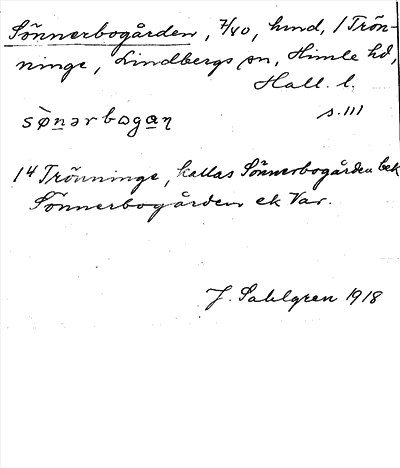 Sönnerbogården, 7/40, hmd, 1 Trön-
ninge, Lindbergs sn, Himle hd,
Hall. l.
s. 111
sø̀nərbogan
14 Trönninge, kallas Sönnerbogården bek
Sönnerbogården ek Var.
J. Sahlgren 1918